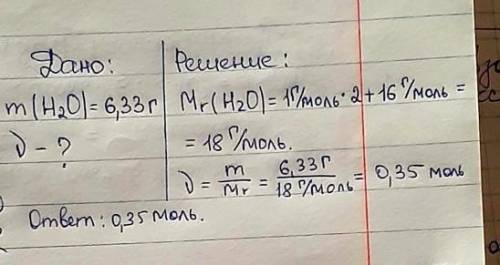 Дано:
m(H₂O)=6,33г
ν - ?
Решение:
Mr(H₂O)=1г/моль·2+16г/моль=
=18г/моль.
ν = m/Mr = 6,33г/18г/моль = 0,35 моль
Ответ: 0,35 моль.